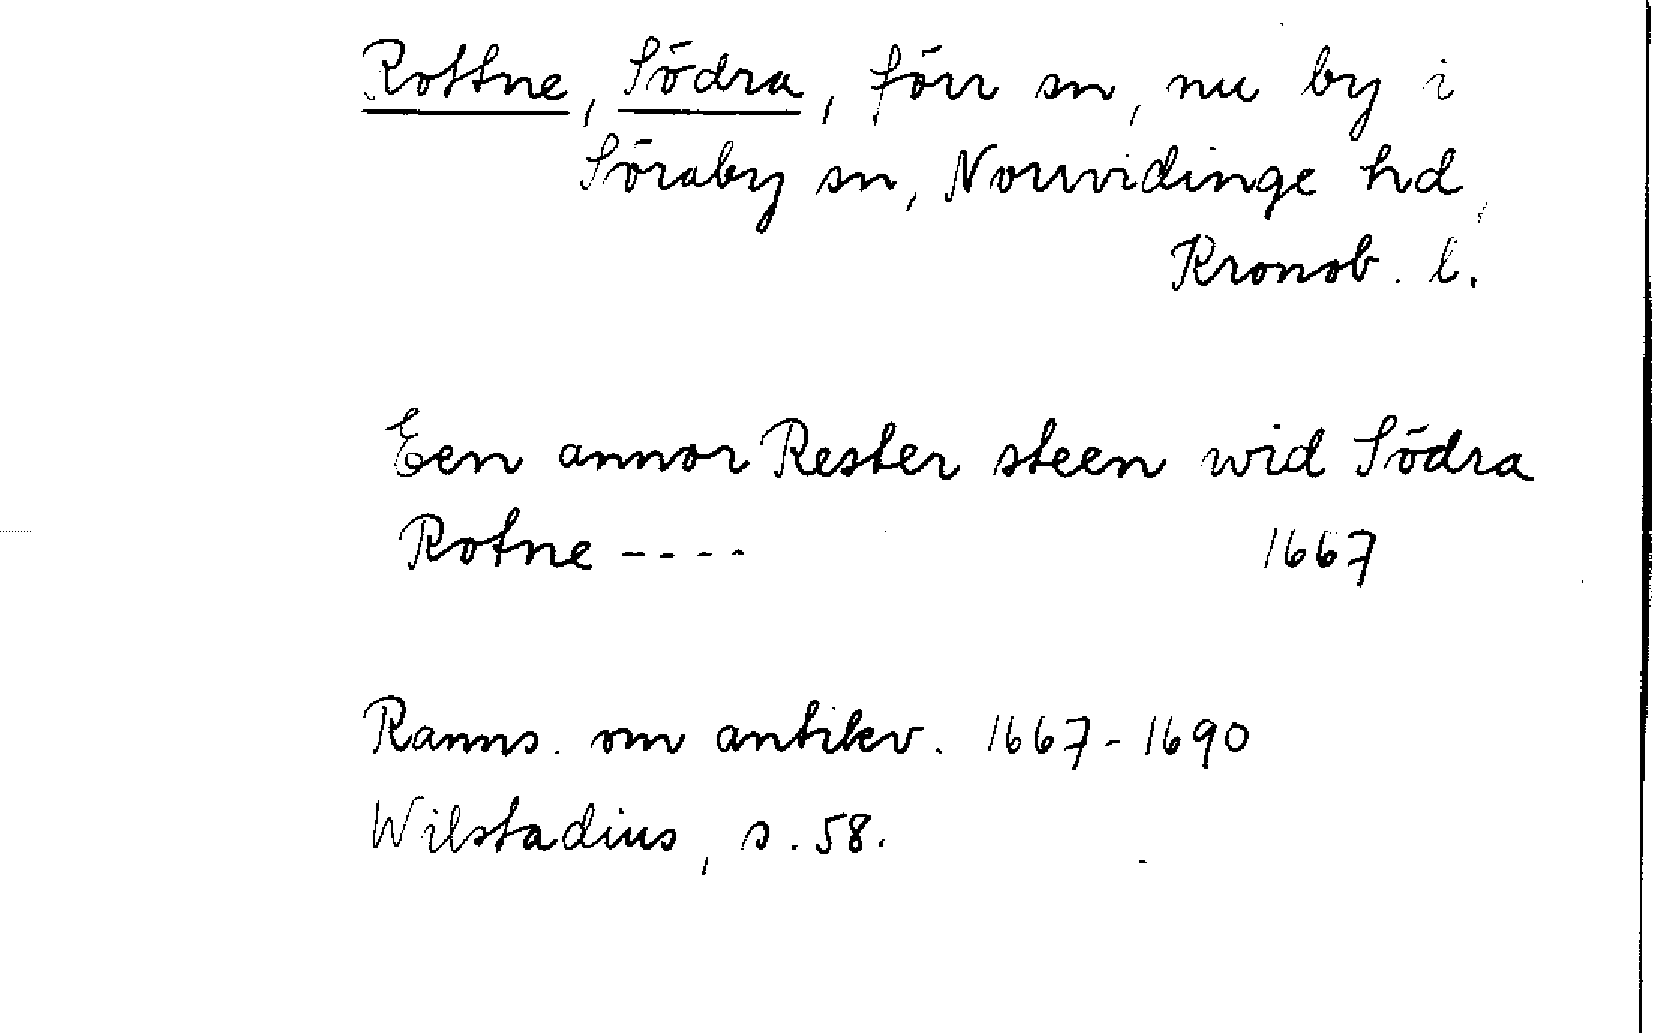 Rottne, Södra, förr sn, nu by i
Söraby sn, Norrvidinge hd,
Kronob. l.
Een annor Rester steen wid Södra
Rotne ----
1667
Ranns. om antikv. 1667-1690
Wilstadius, s. 58.